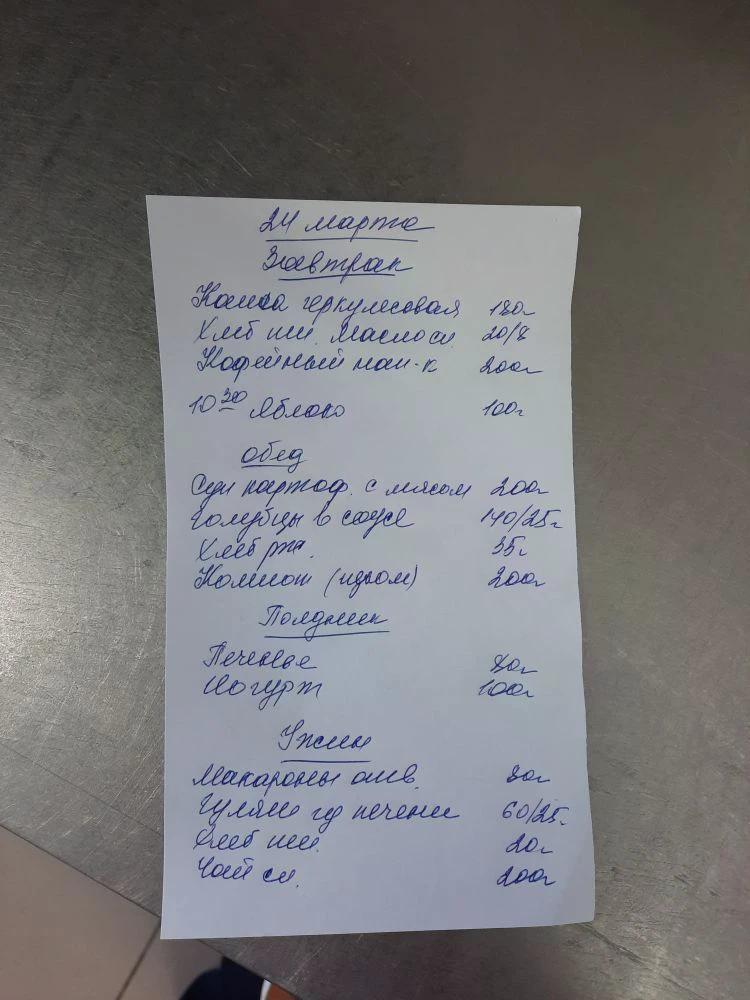 24 марта
Завтрак
Каша геркулесовая 180г
Хлеб пш. масло сл. 20/8
Кофейный нап-к 200г
10 30 Яблоко 100г
Обед
Суп картоф. с мясом 200г
Голубцы в соусе 140/25г
Хлеб рж. 35г
Компот (изюм) 200г
Полдник
Печенье
Йогурт 100г
Ужин
Макароны отв.
Гуляш из печени 60/25г
Хлеб пш. 20г
Чай сл. 200г